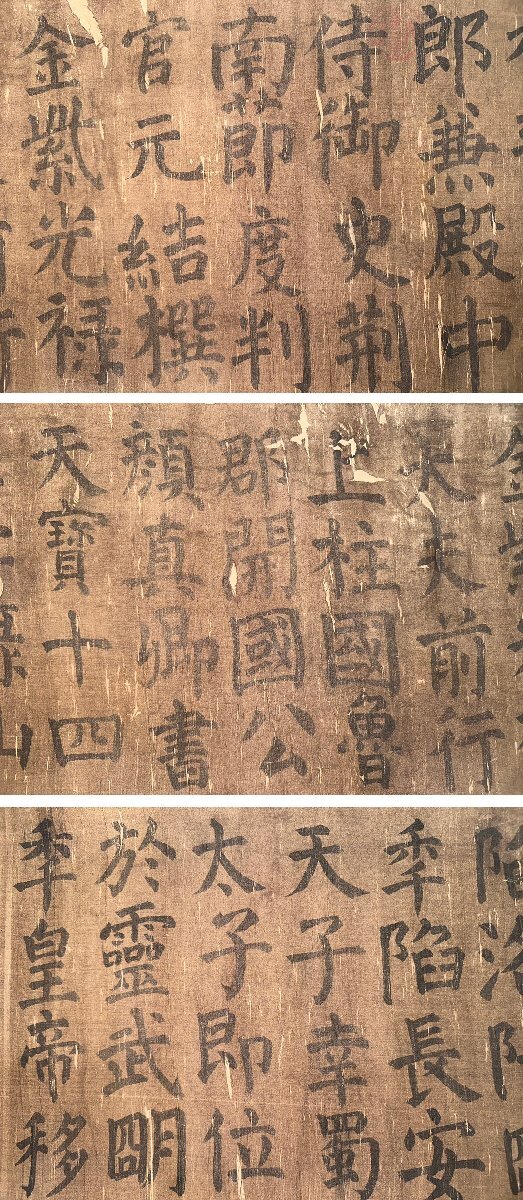 郎兼殿中
侍御史荆
南節度判
官元結撰
金紫光禄
大夫前行
上柱國魯
郡開國公
顏真卿書
天寶十四
陷洛陽
秊陷長安
天子幸蜀
太子即位
於靈武明
秊皇帝移